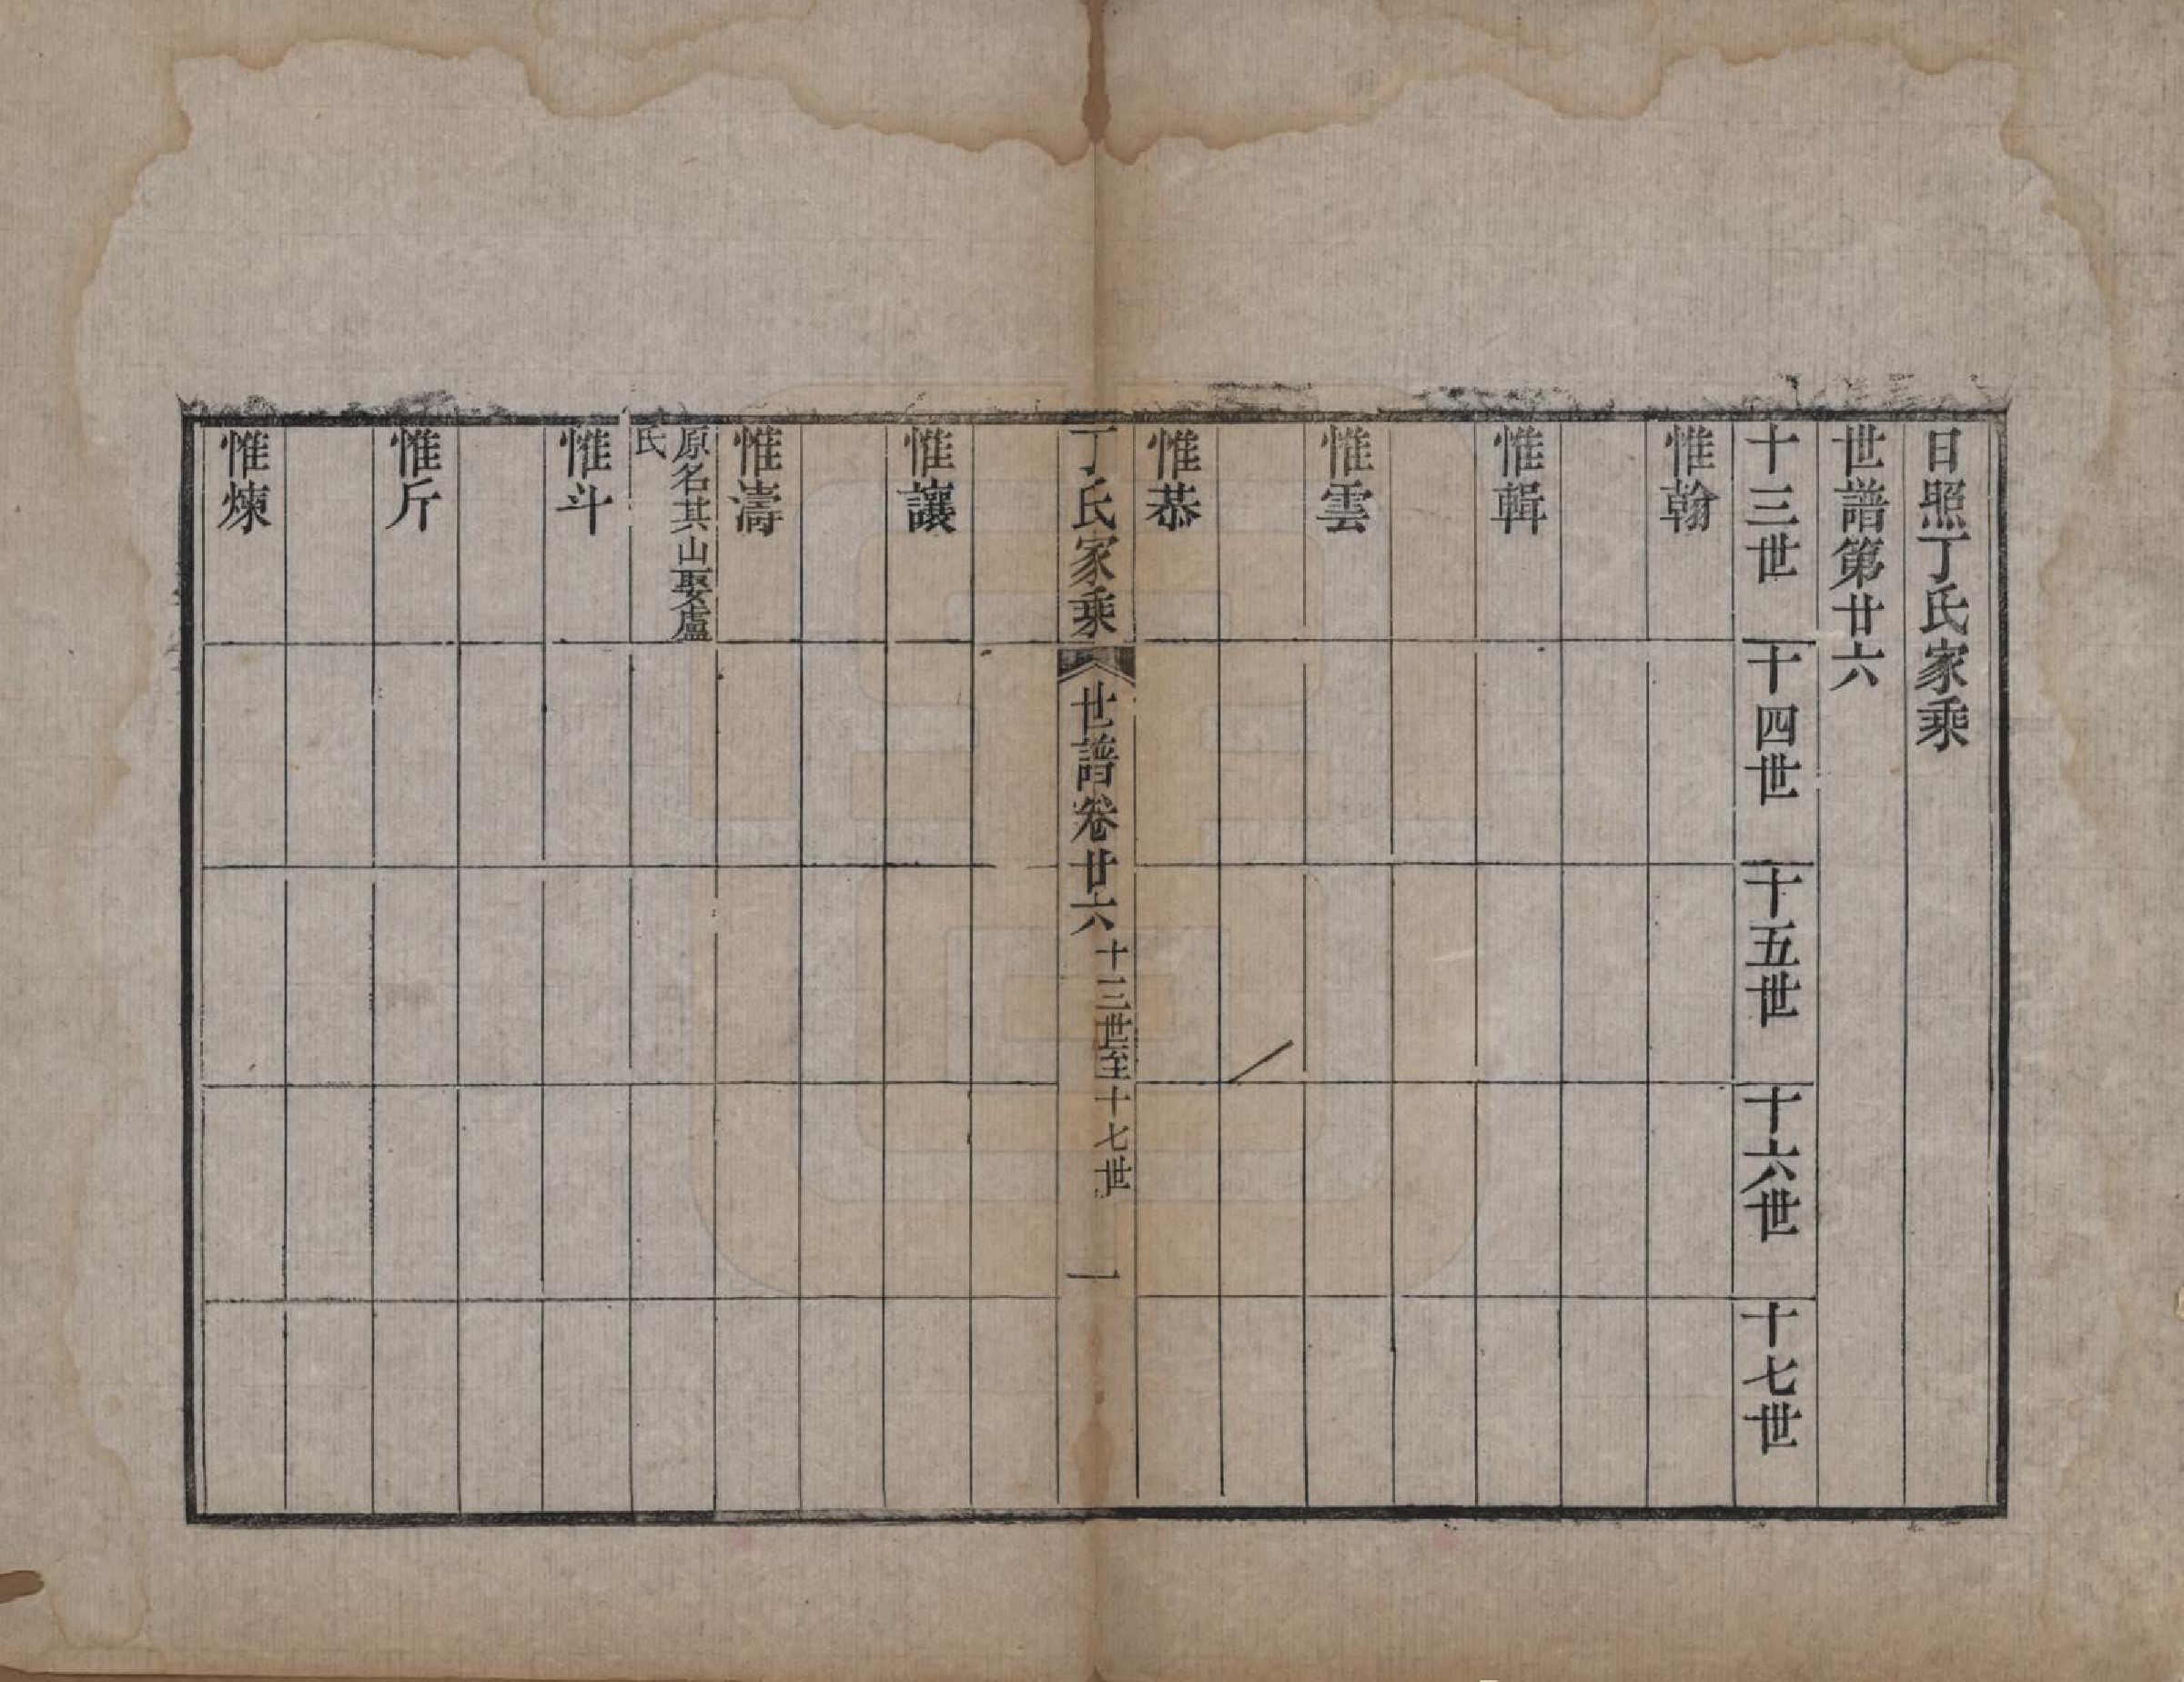 日照丁氏家乘
世譜第廿六
十三世 十四世 十五世 十六世 十七世
惟翰
惟輯
惟雲
惟恭
丁氏家乘 世譜卷廿六 十三世至十七世 一
惟讓
惟濤
原名其山娶盧
氏
惟斗
惟斤
惟煉